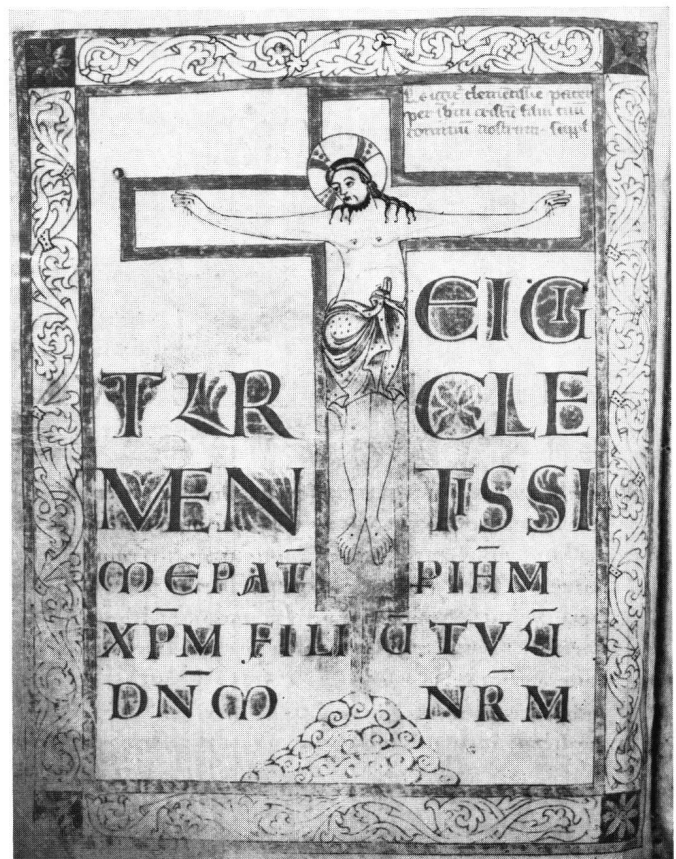 Te igit clementissime pater
per ihm cristū filiū tuū
dominū nostrum. suppl
EIGI
TUR CLE
MEN TISSI
MEPAT̄ PIH̄M
XP̄M FILI Ū TVŪ
DN̄M NR̄M